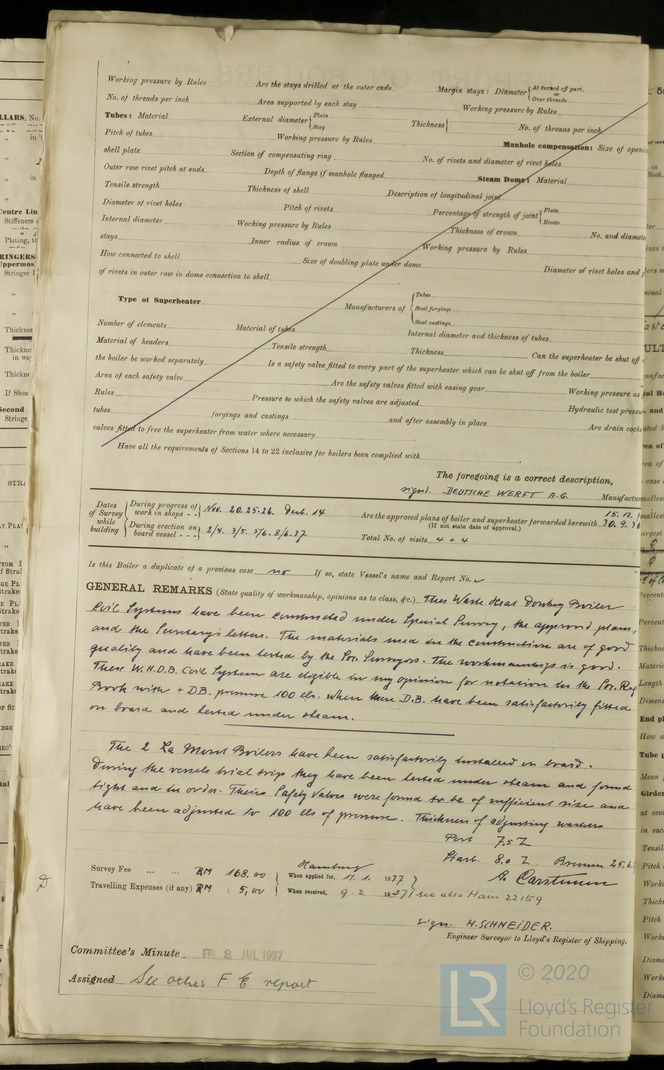 Working pressure by Rules Are the stays drilled at the outer ends Margin stays: Diameter { At turned off part, or Over threads
No. of threads per inch Area supported by each stay Working pressure by Rules
Tubes: Material External diameter { Plain Stay Thickness { No. of threads per inch
Pitch of tubes Working pressure by Rules Manhole compensation: Size of openi
shell plate Section of compensating ring No. of rivets and diameter of rivet holes
Outer row rivet pitch at ends Depth of flange if manhole flanged Steam Dome: Material
Tensile strength Thickness of shell Description of longitudinal joint
Diameter of rivet holes Pitch of rivets Percentage of strength of joint { Plate Rivets
Internal diameter Working pressure by Rules Thickness of crown No. and diamete
stays Inner radius of crown Working pressure by Rules
How connected to shell Size of doubling plate under dome Diameter of rivet holes and
of rivets in outer row in dome connection to shell
Type of Superheater Manufacturers of { Tubes Steel forgings Steel castings
Number of elements Material of tubes Internal diameter and thickness of tubes
Material of headers Tensile strength Thickness Can the superheater be shut off
the boiler be worked separately Is a safety valve fitted to every part of the superheater which can be shut off from the boiler
Area of each safety valve Are the safety valves fitted with easing gear Working pressure as
Rules Pressure to which the safety valves are adjusted Hydraulic test pressu
tubes forgings and castings and after assembly in place Are drain cocks
valves fitted to free the superheater from water where necessary
Have all the requirements of Sections 14 to 22 inclusive for boilers been complied with
The foregoing is a correct description,
signd. DEUTSCHE WERFT A.G. Manufactur
Dates of Survey while building { During progress of work in shops - - Nov. 20.25.26. Dect. 14 Are the approved plans of boiler and superheater forwarded herewith 15.12. 30.9.36
(If not state date of approval.)
During erection on board vessel - - - 2/4. 3/5. 5/6. 8/6.37 Total No. of visits 4 + 4
Is this Boiler a duplicate of a previous case no If so, state Vessel's name and Report No.
GENERAL REMARKS (State quality of workmanship, opinions as to class, &c.) This Waste Heat Donkey Boiler
Coil Systems have been constructed under Special Survey, the approved plans,
and the Secretary's letters. The materials used in the construction are of good
quality and have been tested by the Soc. Surveyors. The workmanship is good.
These W.H.D.B. Coil System are eligible in my opinion for notation in the Soc. Reg
Book with + D.B. pressure 100 lbs. when these D.B. have been satisfactorily fitted
on board and tested under steam.
The 2 La Mont Boilers have been satisfactorily installed on board.
During the vessels trial trip they have been tested under steam and found
tight and in order. Their Safety Valves were found to be of sufficient size and
have been adjusted to 100 lbs of pressure. Thickness of adjusting washers
Port 7.5
Starb. 8.0 Bremen 25.6.
Carstensen
Survey Fee ... ... RM 168.00 Hamburg When applied for, 11. 1. 1937
Travelling Expenses (if any) RM : 5,00 When received, 9.2 1937 see also Ham 22159
sign. H. SCHNEIDER.
Engineer Surveyor to Lloyd's Register of Shipping.
Committee's Minute FRI 2 JUL 1937
Assigned See other F.E. report
LR © 2020
Lloyd's Register
Foundation